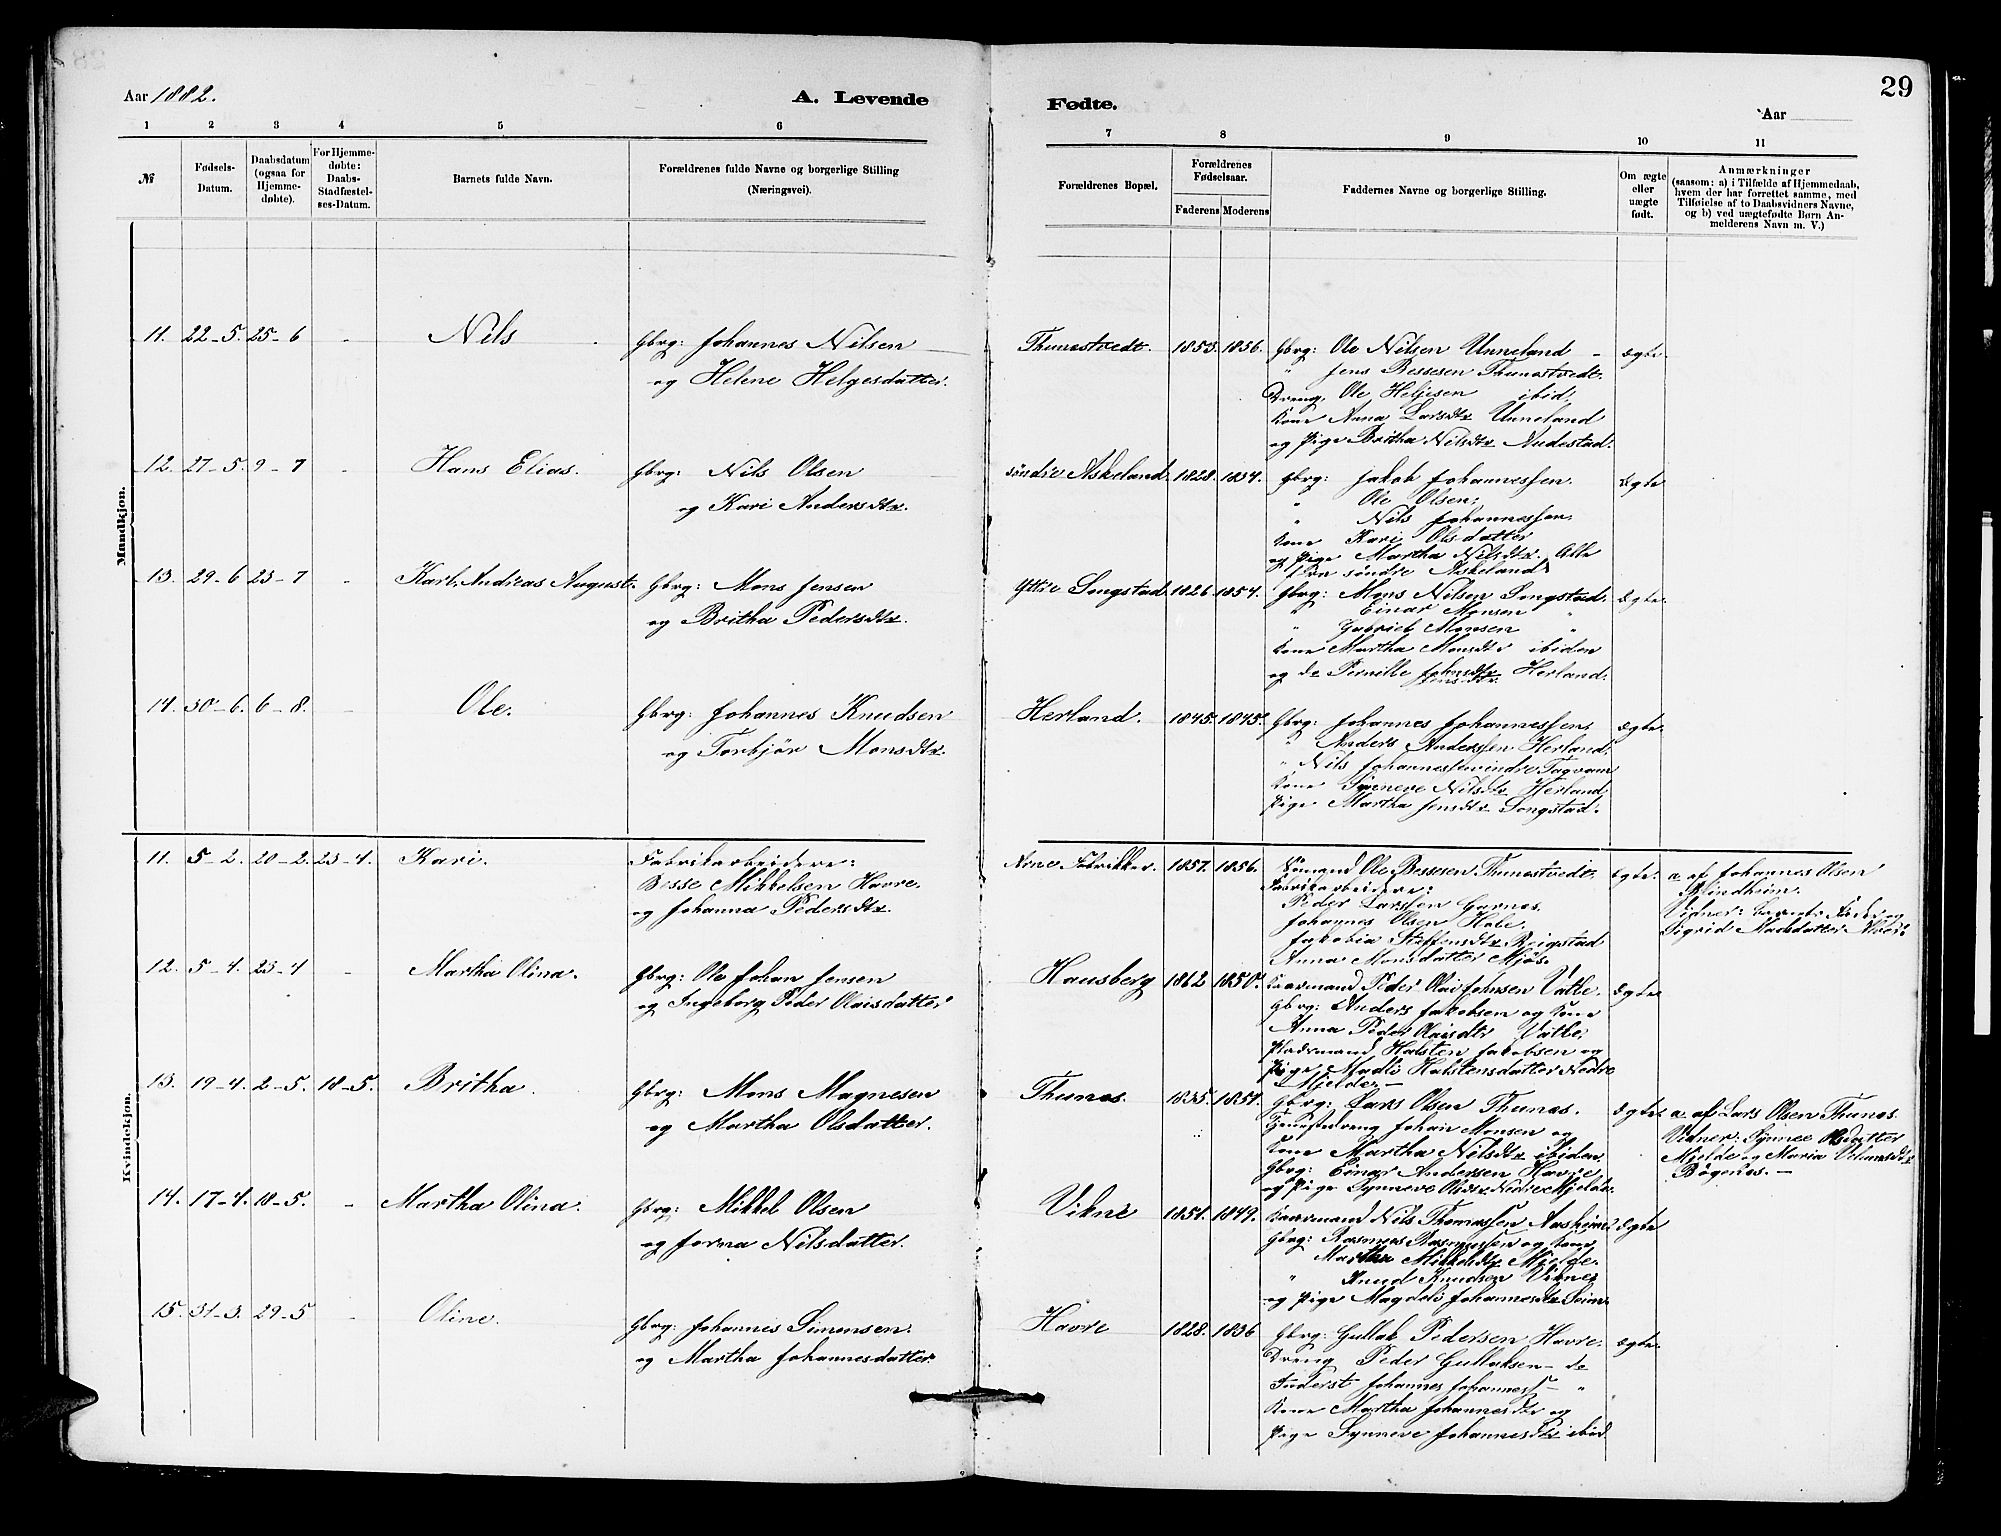 29
Aar 1882.
A. Levende
Fødte.
Aar
1 2 3 4 5 6
7 8 9 10 11
№
Fødsels-
Datum.
Daabsdatum
(ogsaa for
Hjemme-
døbte).
For Hjemme-
døbte:
Daabs-
Stadfæstel-
ses-Datum.
Barnets fulde Navn.
Forældrenes fulde Navne og borgerlige Stilling
(Næringsvei).
Forældrenes Bopæl.
Forældrenes
Fødselsaar.
Faderens Moderens
Faddernes Navne og borgerlige Stilling.
Om ægte
eller
uægte
født.
Anmærkninger
(saasom: a) i Tilfælde af Hjemmedaab,
hvem der har forrettet samme, med
Tilføielse af to Daabsvidners Navne,
og b) ved uægtefødte Børn An-
melderens Navn m. V.)
Mandkjøn.
11. 22-5. 25-6 - Nils Gbrg: Johannes Nilsen
og Helene Helgesdatter.
Thunestvedt. 1853. 1856. Gbrg: Ole Nilsen Unneland - ægte
" Jens Bessesen Thunestvedt.
Dreng, Ole Helgesen ibid.
Kone Anna Larsdtr Unneland
og Pige Britha Nilsdtr Audestad.
12. 27-5. 9-7 - Hans Elias. Gbrg: Nils Olsen
og Kari Andersdtr.
søndre Askeland. 1828. 1834. Gbrg: Jakob Johannessen. ægte
" Ole Olsen;
" Nils Johannessen.
Kone Kari Olsdatter
og Pige Martha Nilsdtr. Alle
fra søndre Askeland.
13. 29-6 23-7 - Karl Andreas August. Gbrg: Mons Jensen
og Britha Pedersdtr.
Yttre Songstad. 1826. 1854. Gbrg: Mons Nilsen Songstad. ægte.
" Einar Monsen "
" Gabriel Monsen "
Kone Martha Monsdtr ibiden
og de Pernille Jensdtr Herland.
14. 30-6. 6-8. - Ole. Gbrg: Johannes Knudsen
og Torbjør Monsdtr.
Herland. 1845. 1845. Gbrg: Johannes Johannessen, ægte.
" Anders Anderssen Herland.
" Nils Johannessen indre Tagvam
Kone Synneve Nilsdtr Herland
Pige Martha Jensdtr Songstad.
Kvindekjøn.
11. 5-2. 20-2. 23-4. Kari. Fabrikarbeidere:
Besse Mikkelsen Havre.
og Johanna Pedersdtr.
Arne Fabrikker. 1857. 1856. Sømand Ole Bessesen Thunestvedt. ægte. a. af Johannes Olsen
Fabrikarbeidere:
Peder Larssen Garnes.
Johannes Olsen Hole.
Jakobia Steffensdtr Reigstad
Anna Monsdatter Mjøs.
Blindheim.
Vidner: Barnets Fader og
Sigrid Madsdatter
12. 5-4. 23-4 - Martha Olina. Gbrg: Ole Johan Jensen
og Ingeborg Peder Olaisdatter
Hausberg 1862 1850. Kaarmand Peder Olai Johnsen Vatle. ægte
Gbrg: Anders Jakobsen og Kone
Anna Peder Olaisdtr Vatle,
Pladsmand Halsten Jakobsen og
Pige Madli Halstensdatter Nedre
Mjelde. -
13. 19-4. 2-5. 18-5. Britha. Gbrg: Mons Magnesen
og Martha Olsdatter.
Thunes. 1835. 1851. Gbrg: Lars Olsen Thunes. ægte. a. af Lars Olsen Thunes.
Tjenestedreng Johan Monsen og
Kone Martha Nilsdtr ibiden
Gbrg: Einar Andersen Havre
og Pige Synneve Olsdtr Nedre Mjelde.
Vidner: Synneve Olsdatter
Mjelde og Maria
Bøgenes. -
14. 17-4. 18-5. - Martha Olina. Gbrg: Mikkel Olsen
og Jorma Nilsdatter.
Vikne 1851. 1849. Kaarmand Nils Thomassen Aasheim ægte
Gbrg: Rasmus Rasmussen og Kone
Martha Mikkelsdtr Mjelde.
" Knud Knudsen Vikne
og Pige Magdeli Johannesdtr Seim.
15. 31-3. 29-5 - Oline. Gbrg: Johannes Simonsen.
og Martha Johannesdatter.
Havre 1828. 1836 Gbrg: Gullak Pedersen Havre. ægte.
Dreng Peder Gullaksen - de
Inderst Johannes Johanness - "
Kone Martha Johannesdtr og
Pige Synneve Johannesdtr ibid